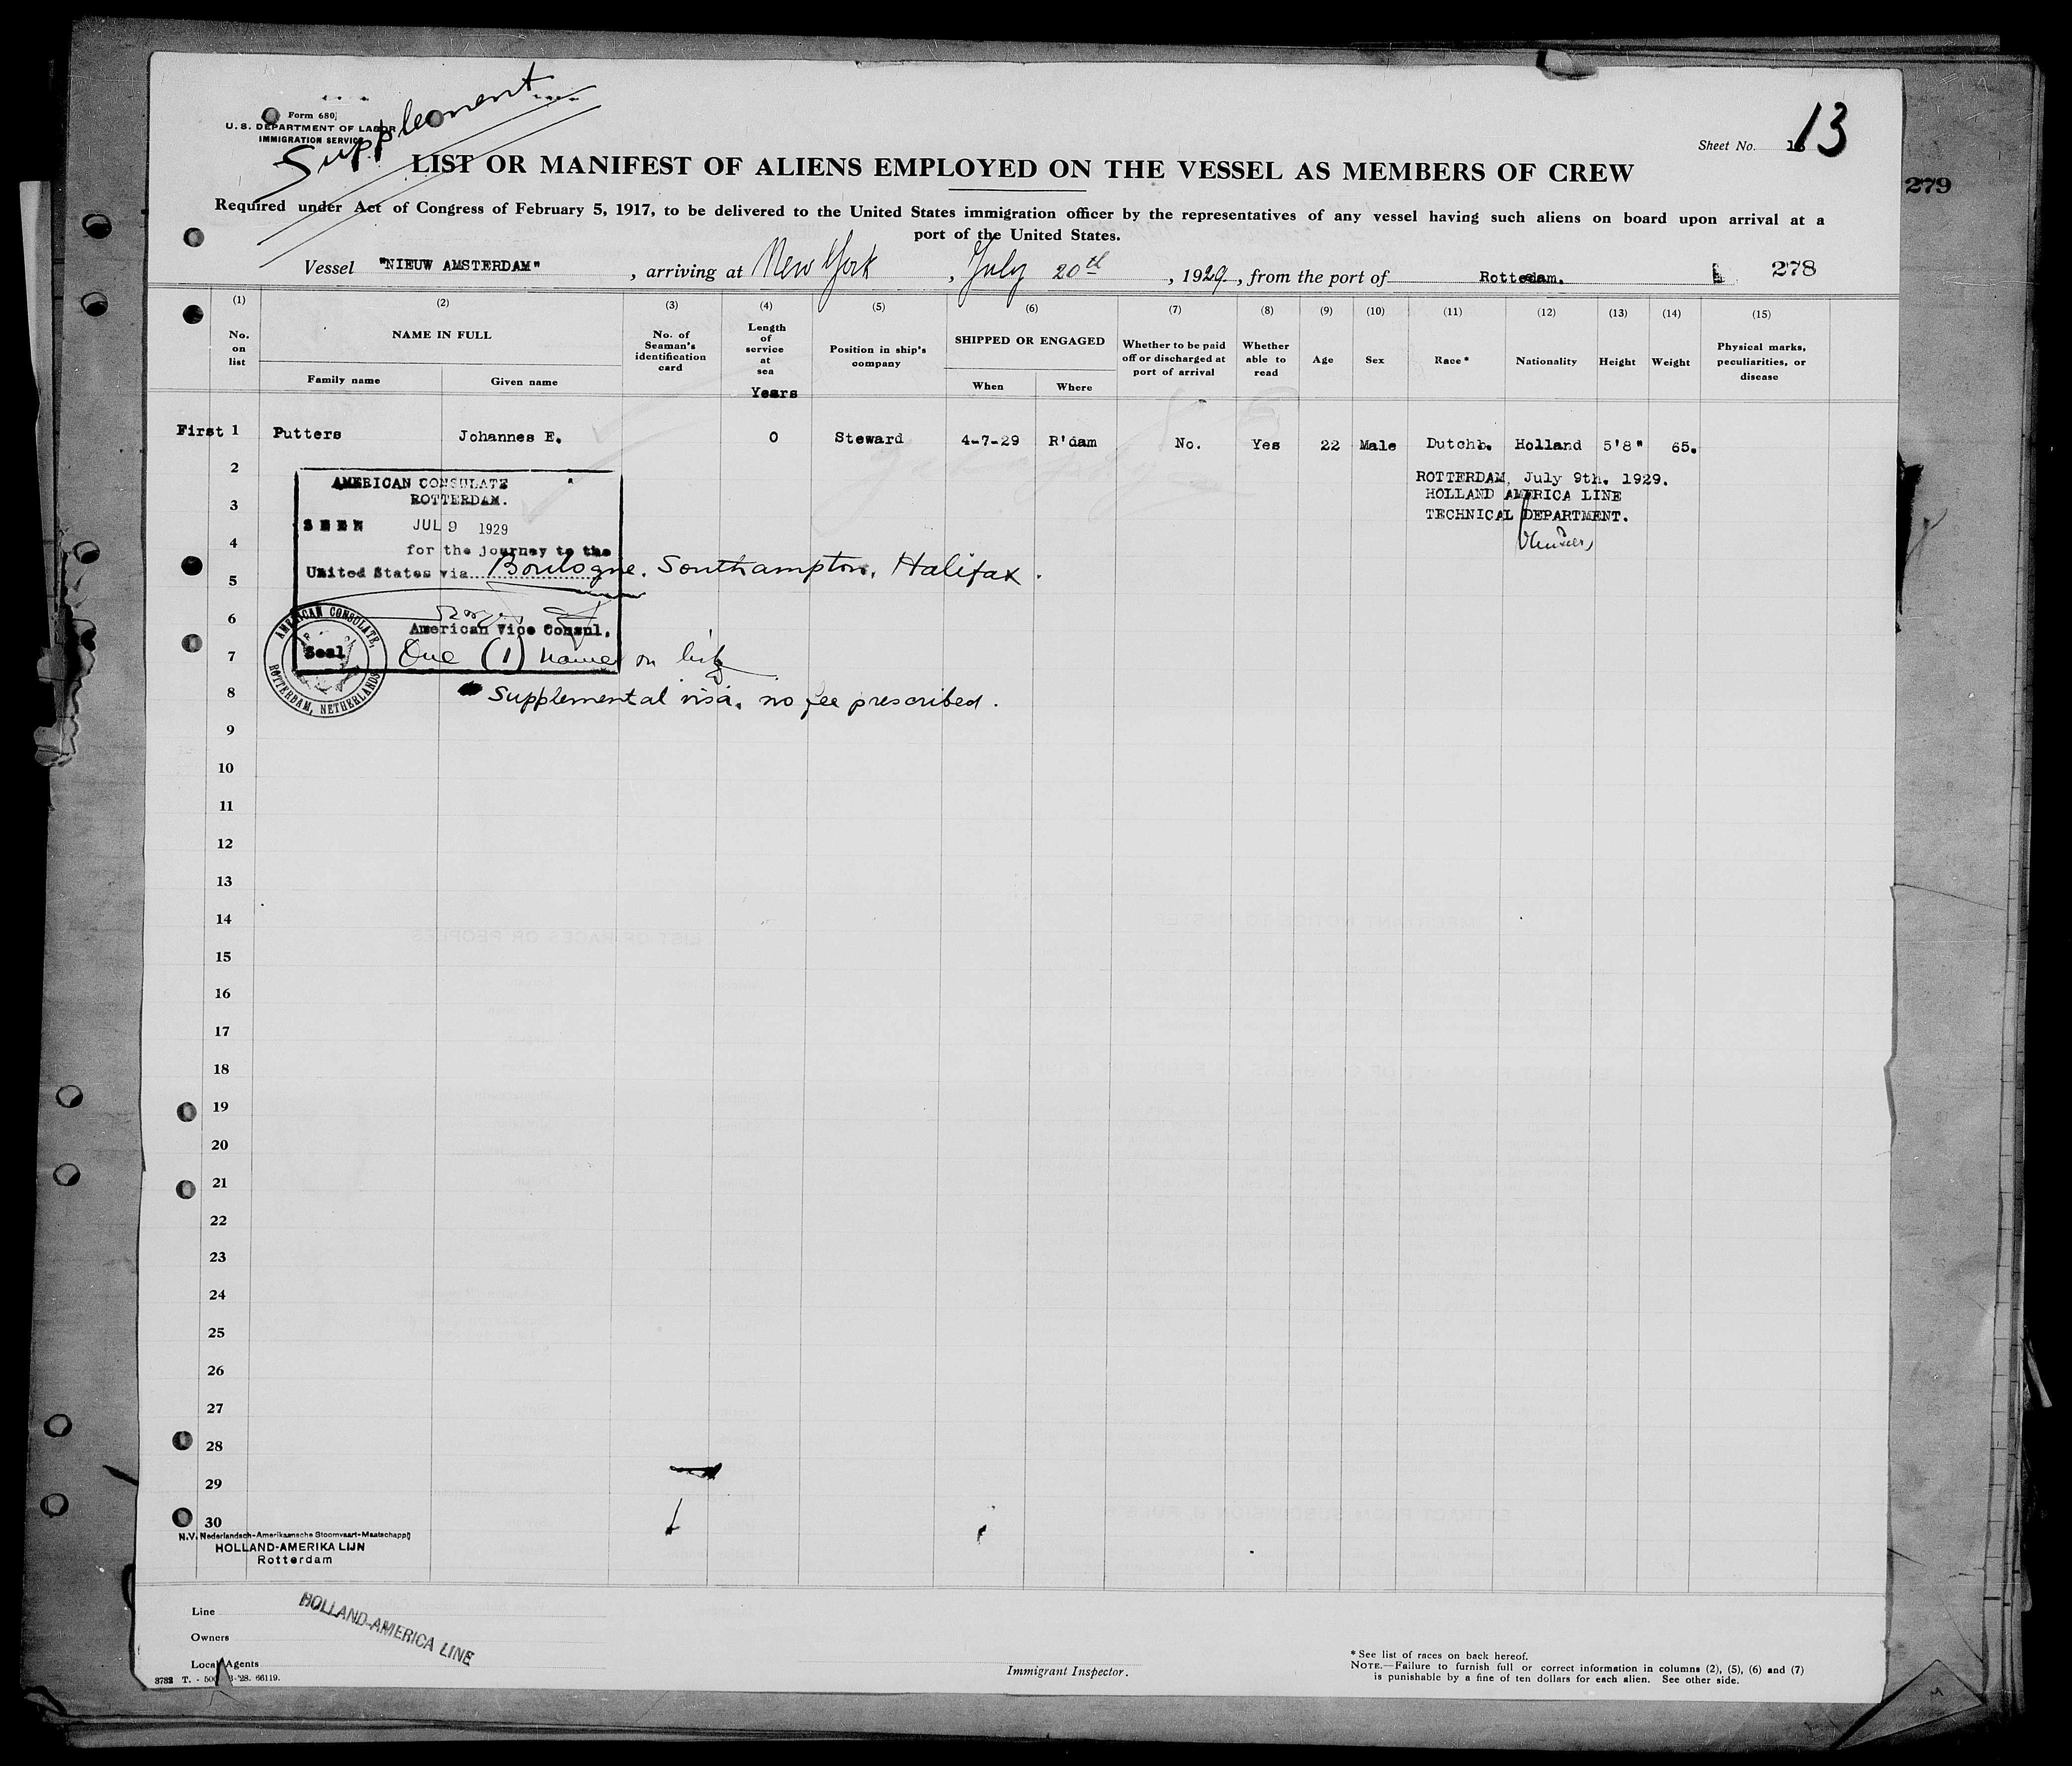 Supplement
Form 680
U. S. DEPARTMENT OF LABOR
IMMIGRATION SERVICE
Sheet No. 13
LIST OR MANIFEST OF ALIENS EMPLOYED ON THE VESSEL AS MEMBERS OF CREW
279
Required under Act of Congress of February 5, 1917, to be delivered to the United States immigration officer by the representatives of any vessel having such aliens on board upon arrival at a
port of the United States.
Vessel "NIEUW AMSTERDAM", arriving at New York, July 20th, 1929, from the port of Rotterdam. 278
(1) (2) (3) (4) (5) (6) (7) (8) (9) (10) (11) (12) (13) (14) (15)
No. on list
NAME IN FULL
Family name
Given name
No. of Seaman's identification card
Length of service at sea
Years
Position in ship's company
SHIPPED OR ENGAGED
When
Where
Whether to be paid off or discharged at port of arrival
Whether able to read
Age
Sex
Race*
Nationality
Height
Weight
Physical marks, peculiarities, or disease
First 1 Putters Johannes E. 0 Steward 4-7-29 R'dam No. Yes 22 Male Dutch. Holland 5'8" 65.
2
3
4
5
6
7
8
9
10
11
12
13
14
15
16
17
18
19
20
21
22
23
24
25
26
27
28
29
30
AMERICAN CONSULATE
ROTTERDAM.
SEEN JUL 9 1929
for the journey to the
United States via Boulogne. Southampton, Halifax.
American Vice Consul.
Seal
AMERICAN CONSULATE, ROTTERDAM, NETHERLANDS
One (1) name on list
Supplemental visa. no fee prescribed.
ROTTERDAM, July 9th. 1929.
HOLLAND AMERICA LINE
TECHNICAL DEPARTMENT.
N.V. Nederlandsch-Amerikaansche Stoomvaart-Maatschappij
HOLLAND-AMERIKA LIJN
Rotterdam
Line
Owners
Local Agents
HOLLAND-AMERICA LINE
3782 T. - 66119.
Immigrant Inspector.
* See list of races on back hereof.
NOTE.—Failure to furnish full or correct information in columns (2), (5), (6) and (7)
is punishable by a fine of ten dollars for each alien. See other side.